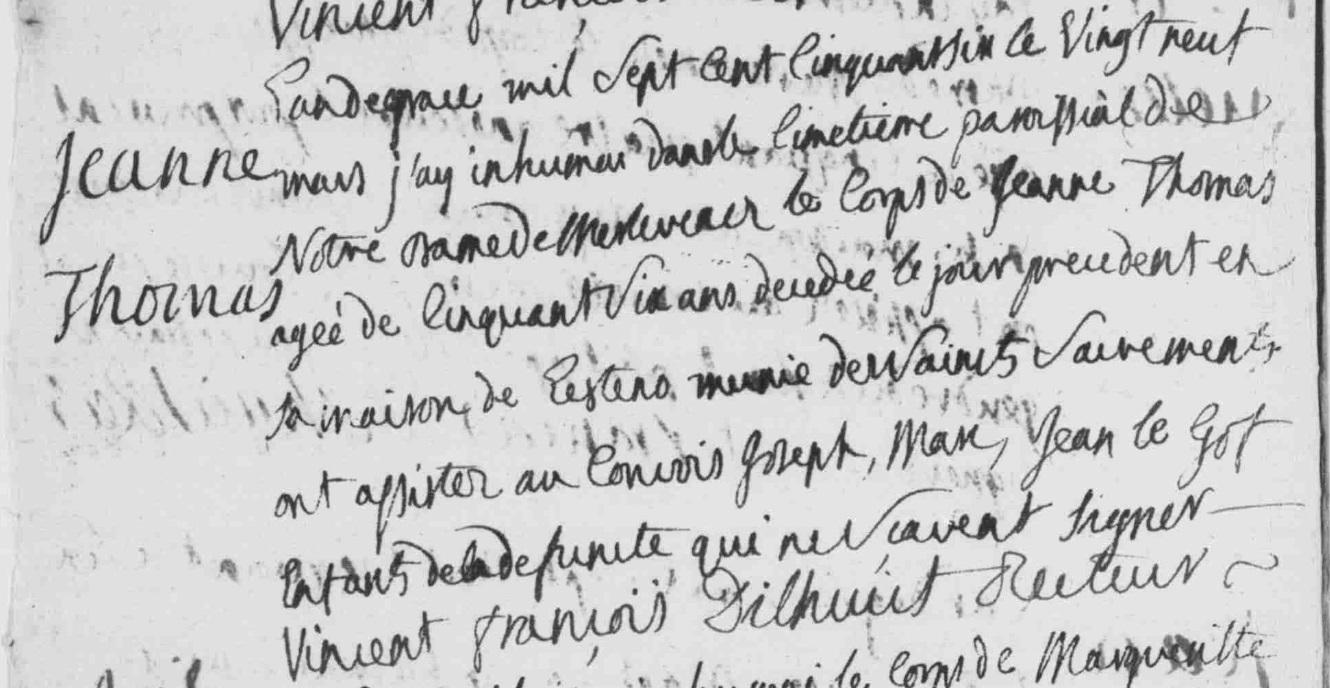 Vincent françois
L'an de grace mil sept cent cinquantsix le vingt neuf
Jeanne
mars j'ay inhumai dans le cimetierre paroissial de
Notre dame de Merlevenez le corps de Jeanne Thomas
Thomas
ageé de cinquant six ans decedeé le jour precedent en
sa maison de munie des saints sacrements
ont assister au convois Joseph, Marc, Jean le Gof
enfants de la defuncte qui ne scavent signer
Vincent françois Recteur
le corps de Margueritte